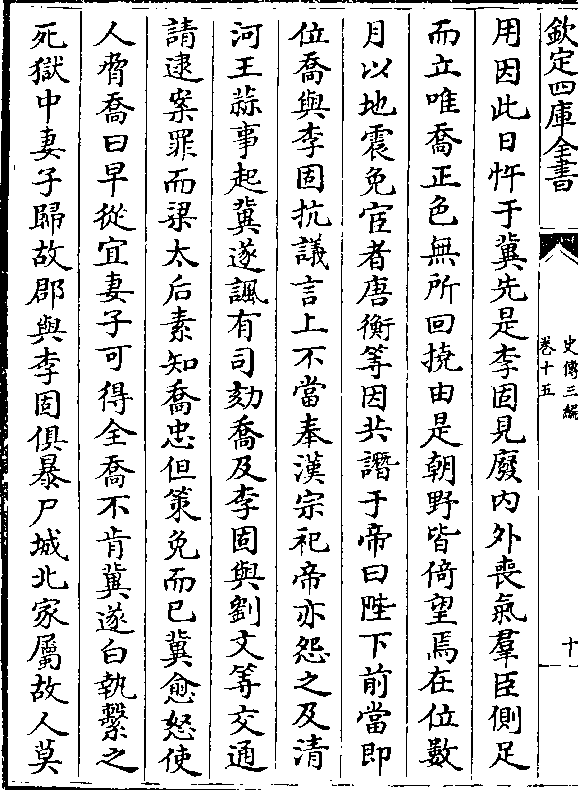 欽定四庫全書
史傳三編
卷十五
十
用因此日忤于冀先是李固見廢内外喪氣羣臣側足
而立唯喬正色無所回撓由是朝野皆倚望焉在位數
月以地震免宦者唐衡等因共譖于帝曰陛下前當即
位喬與李固抗議言上不當奉漢宗祀帝亦怨之及清
河王蒜事起冀遂諷有司劾喬及李固與劉文等交通
請逮案罪而梁太后素知喬忠但策免而已冀愈怒使
人脅喬曰早從宜妻子可得全喬不肯冀遂白執繫之
死獄中妻子歸故郡與李固俱暴尸城北家屬故人莫